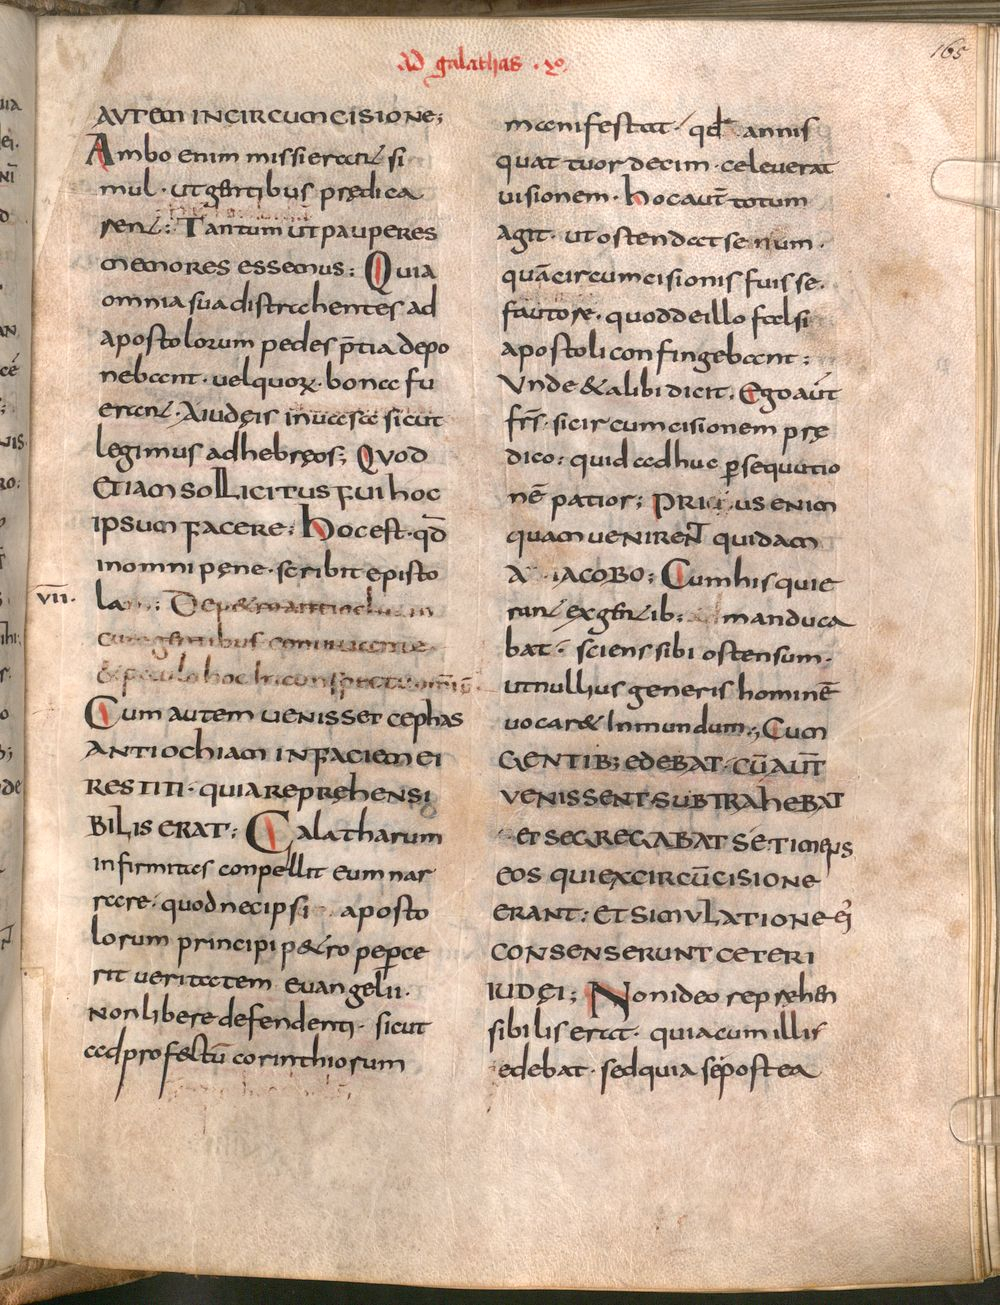 165
Ad galathas
AUTEM IN CIRCUMCISIONE;
Ambo enim missi erant si
mul · ut gentibus prędica
rent: Tantum ut pauperes
memores essemus: Quia
omnia sua distrahentes ad
apostolorum pedes p̄tia depo
nebant · vel quoꝝ · bona fu
erant · A iudęis invasa sicut
legimus ad hebręos; Quod
etiam sollicitus fui hoc
ipsum facere: hoc est · qđ
in omni pene · scribit episto
VII.
Cum autem venisset cephas
antiochiam in faciem ei
restiti · quia reprehensi
bilis erat: Galatharum
infirmitas conpellit eum nar
rare · quod nec ipsi aposto
lorum principi p&ro peperce
rit veritatem evangelii ·
non libere defendenti · sicut
ad profectū corinthiorum
manifestat · qđ annis
quattuordecim · celeverat
visionem · hoc aut̄ totum
agit · ut ostendat se num ·
quā circumcisionis fuisse ·
fautore · quod de illo falsi
apostoli confingebant:
Unde & alibi dicit · Ego aut̄
fr̄s · si circumcisionem prę
dico: quid adhuc ꝑsequutio
nē patior; Prius enim
quam venirent quidam
a iacobo: Cum his qui e
rant ex gentib: manduca
bat · sciens sibi ostensum ·
ut nullius generis hominē
vocar& Inmundum; Cum
gentib; edebat · cū aut̄
venissent subtrahebat
et segregabat se · timens
eos qui ex circūcisione
erant: et simulatione ei
consenserunt ceteri
iudęi; Non ideo reprehen
sibilis erat · quia cum illis
edebat · sed quia se postea